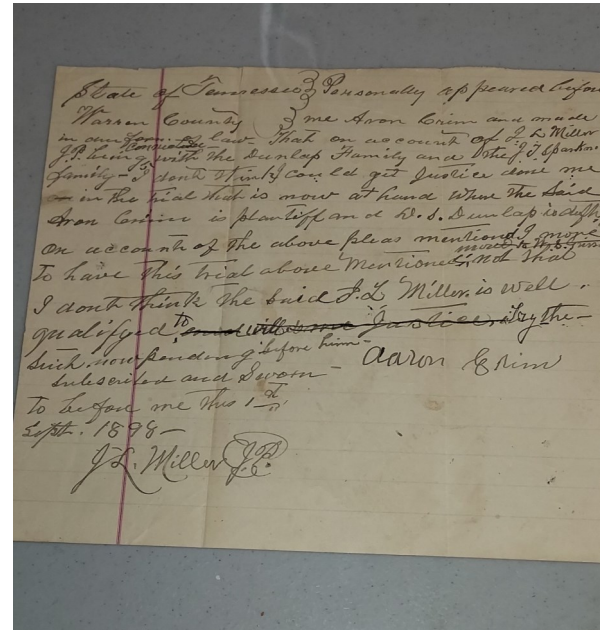 State of Tennessee } Personally appeared before
Warren County } me Aron Crim and made
in due form of law - That on account of J L Miller
J.P. being connected with the Dunlap Family and the J.T.
family - I dont think I could get Justice done me
in the trial that is now at hand where the said
Aron Crim is plaintiff and D. S. Dunlap is
on account of the above pleas mentioned I move
To have this trial above mentioned moved to
Not that
I dont think the said J. L Miller is well
qualified to try the
Such now pending before him -
Aaron Crim
Subscribed and Sworn -
To before me this 1st
Sept. 1898 -
J L. Miller J.P.